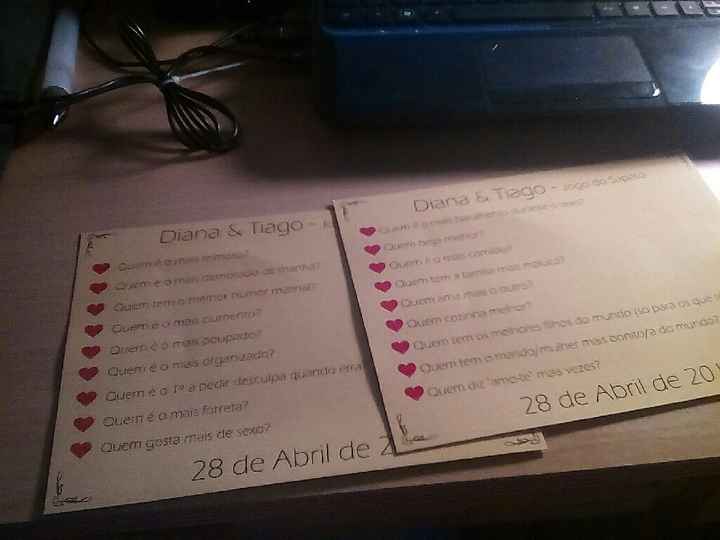 Diana & Tiago -
Quem é o mais teimoso?
Quem é o mais demorado de manhã?
Quem tem o melhor humor matinal?
Quem é o mais ciumento?
Quem é o mais poupado?
Quem é o mais organizado?
Quem é o 1º a pedir desculpa quando erra
Quem é o mais forreta?
Quem gosta mais de sexo?
28 de Abril de 2
Diana & Tiago - Jogo do Sapato
Quem é o mais barulhento durante o
Quem beija melhor?
Quem é o mais comilão?
Quem tem a família mais maluca?
Quem ama mais o outro?
Quem cozinha melhor?
Quem tem os melhores filhos do mundo (só para os que
Quem tem o marido/mulher mais bonito/a do mundo?
Quem diz 'amo-te' mais vezes?
28 de Abril de 20